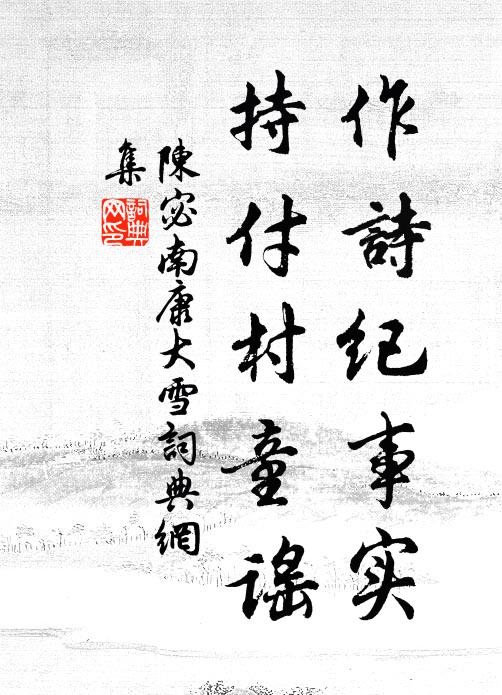 作詩紀事实
持付村童謡
陳宓南康大雪詞典網
集
詞典
网印